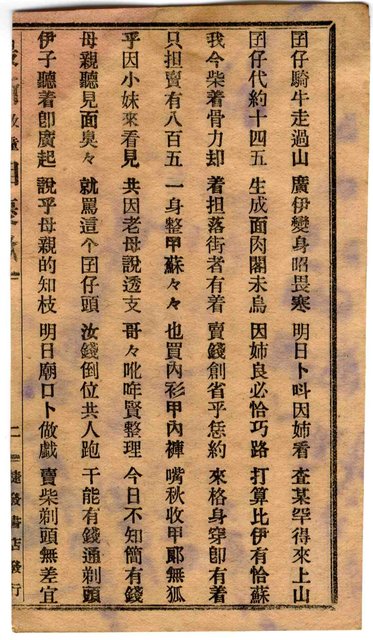 囝仔騎牛走過山 廣伊變身昭畏寒 明日卜呌因姉看 查某罕得來上山
囝仔代約十四五 生成面肉閣未烏 因姉良必恰巧路 打算比伊有恰蘇
我今柴着骨力却 着担落街者有着 賣錢創省乎恁約 來格身穿卽有着
只担賣有八百五 一身整甲蘇々々 也買內衫甲內褲 嘴秋收甲郞無狐
乎因小妹來看見 共因老母說透支 哥々吪哖賢整理 今日不知簡有錢
母親聽見面臭々 就罵這个囝仔頭 汝錢倒位共人跑 干能有錢通剃頭
伊子聽着卽廣起 說乎母親的知枝 明日廟口卜做戲 賣柴剃頭無差宜
二 發書店發行